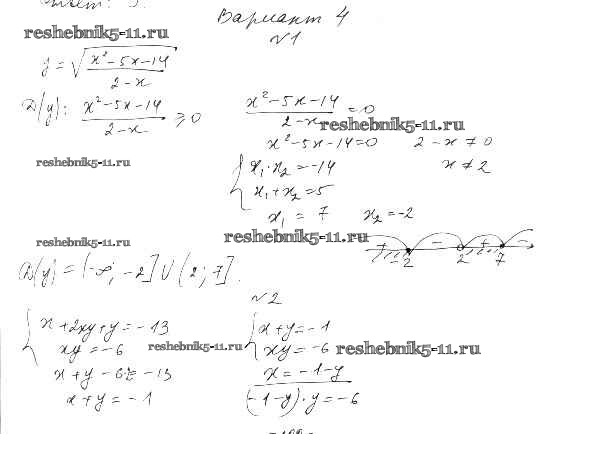 Ответ: 3.
Вариант 4
reshebnik5-11.ru
№1
y = √((x² - 5x - 14)/(2 - x))
D(y): (x² - 5x - 14)/(2 - x) ≥ 0
(x² - 5x - 14)/(2 - x) = 0
reshebnik5-11.ru
x² - 5x - 14 = 0 2 - x ≠ 0
reshebnik5-11.ru
{ x₁·x₂ = -14 x ≠ 2
x₁ + x₂ = 5
x₁ = 7 x₂ = -2
reshebnik5-11.ru
reshebnik5-11.ru
+ - + -
-2 2 7
D(y) = (-∞; -2] U (2; 7].
№2
{ x + 2xy + y = -13
xy = -6
x + y - 6·2 = -13
x + y = -1
{ x + y = -1
xy = -6
reshebnik5-11.ru
reshebnik5-11.ru
x = -1 - y
(-1 - y)·y = -6